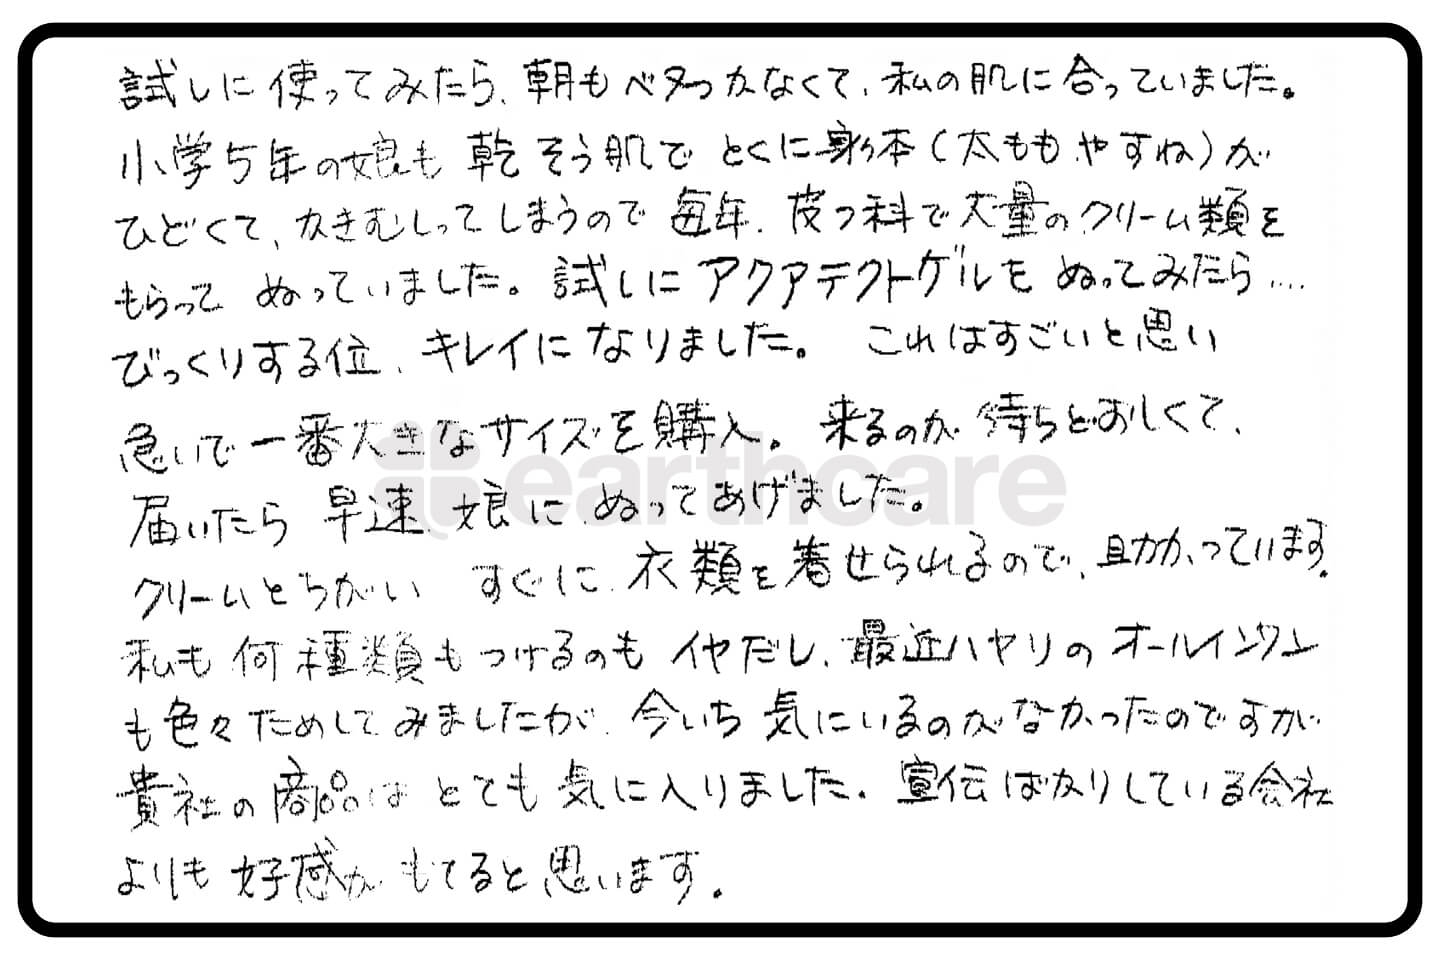 試しに使ってみたら、朝もベタつかなくて、私の肌に合っていました。
小学5年の娘も乾そう肌でとくに身体(太ももやすね)が
ひどくて、かきむしってしまうので毎年、皮フ科で大量のクリーム類を
もらってぬっていました。試しにアクアテクトゲルをぬってみたら…
びっくりする位、キレイになりました。これはすごいと思い
急いで一番大きなサイズを購入。来るのが待ちどおしくて、
届いたら早速、娘にぬってあげました。
クリームとちがいすぐに、衣類を着せられるので、助かっています。
私も何種類もつけるのもイヤだし、最近ハヤリのオールインワン
も色々ためしてみましたが、今いち気にいるのがなかったのですが
貴社の商品はとても気に入りました。宣伝ばかりしている会社
よりも好感がもてると思います。
earthcare